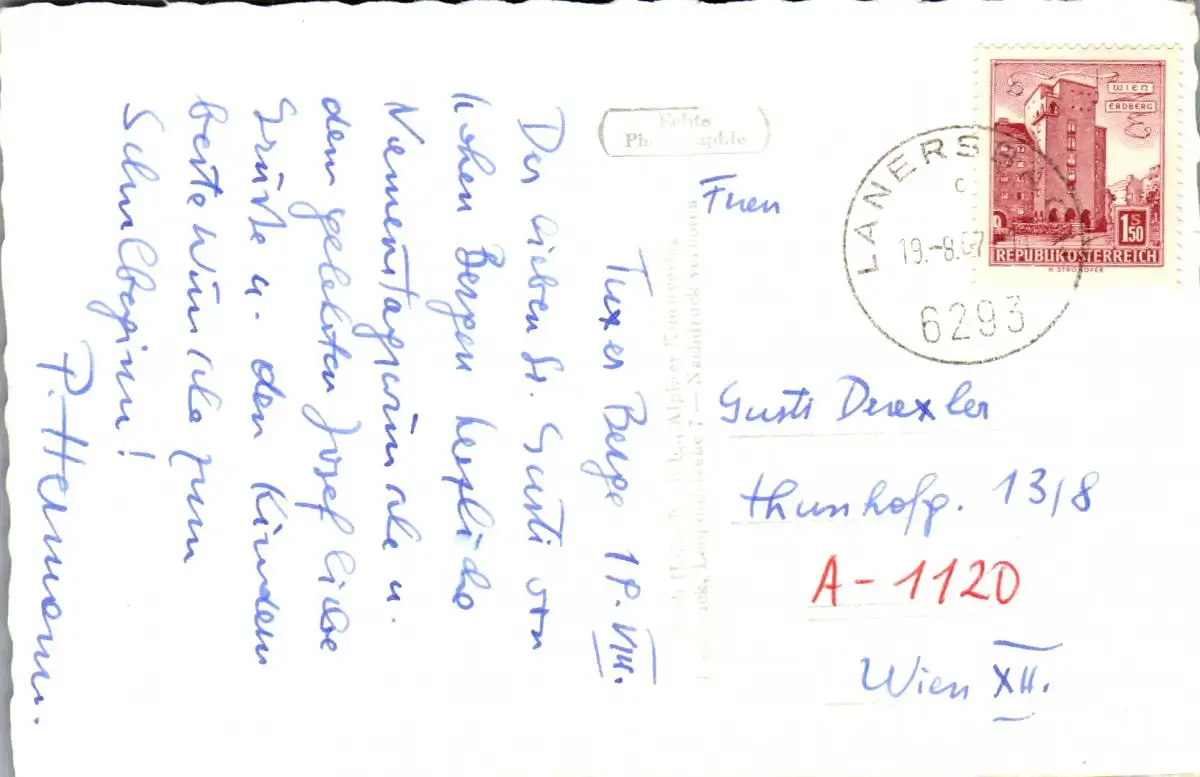 Tuxer Berge 18. VIII.
Der lieben Fr. Gusti von
hohen Bergen herzliche
Namenstagswünsche u.
dem gelehrten Josef liebe
Grüße u. den Kindern
beste Wünsche zum
Schulbeginn!
P. Hermann.
Echte
Photographie
Alpiner Kunstverlag
Nachdruck verboten
WIEN
ERDBERG
S
1.50
REPUBLIK ÖSTERREICH
H. STROHOFER
LANERSBACH
C
19.-8.67
6293
Frau
Gusti Drexler
Thunhofg. 13/8
A-1120
Wien XII.